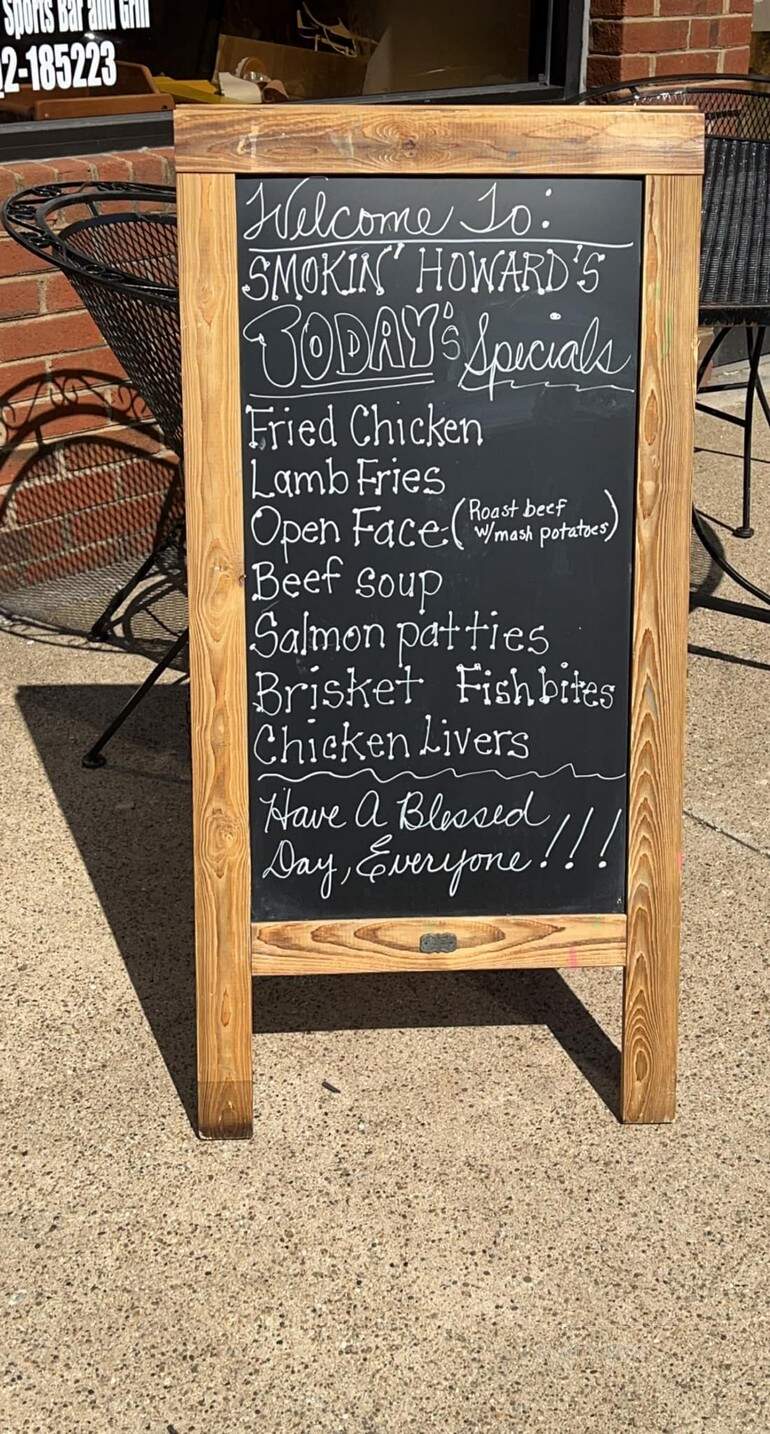 Sports Bar and Grill
2-185223
Welcome To:
SMOKIN' HOWARD'S
TODAY's Specials
Fried Chicken
Lamb Fries
Open Face (Roast beef
w/mash potatoes)
Beef soup
Salmon patties
Brisket Fish bites
Chicken Livers
Have A Blessed
Day, Everyone!!!